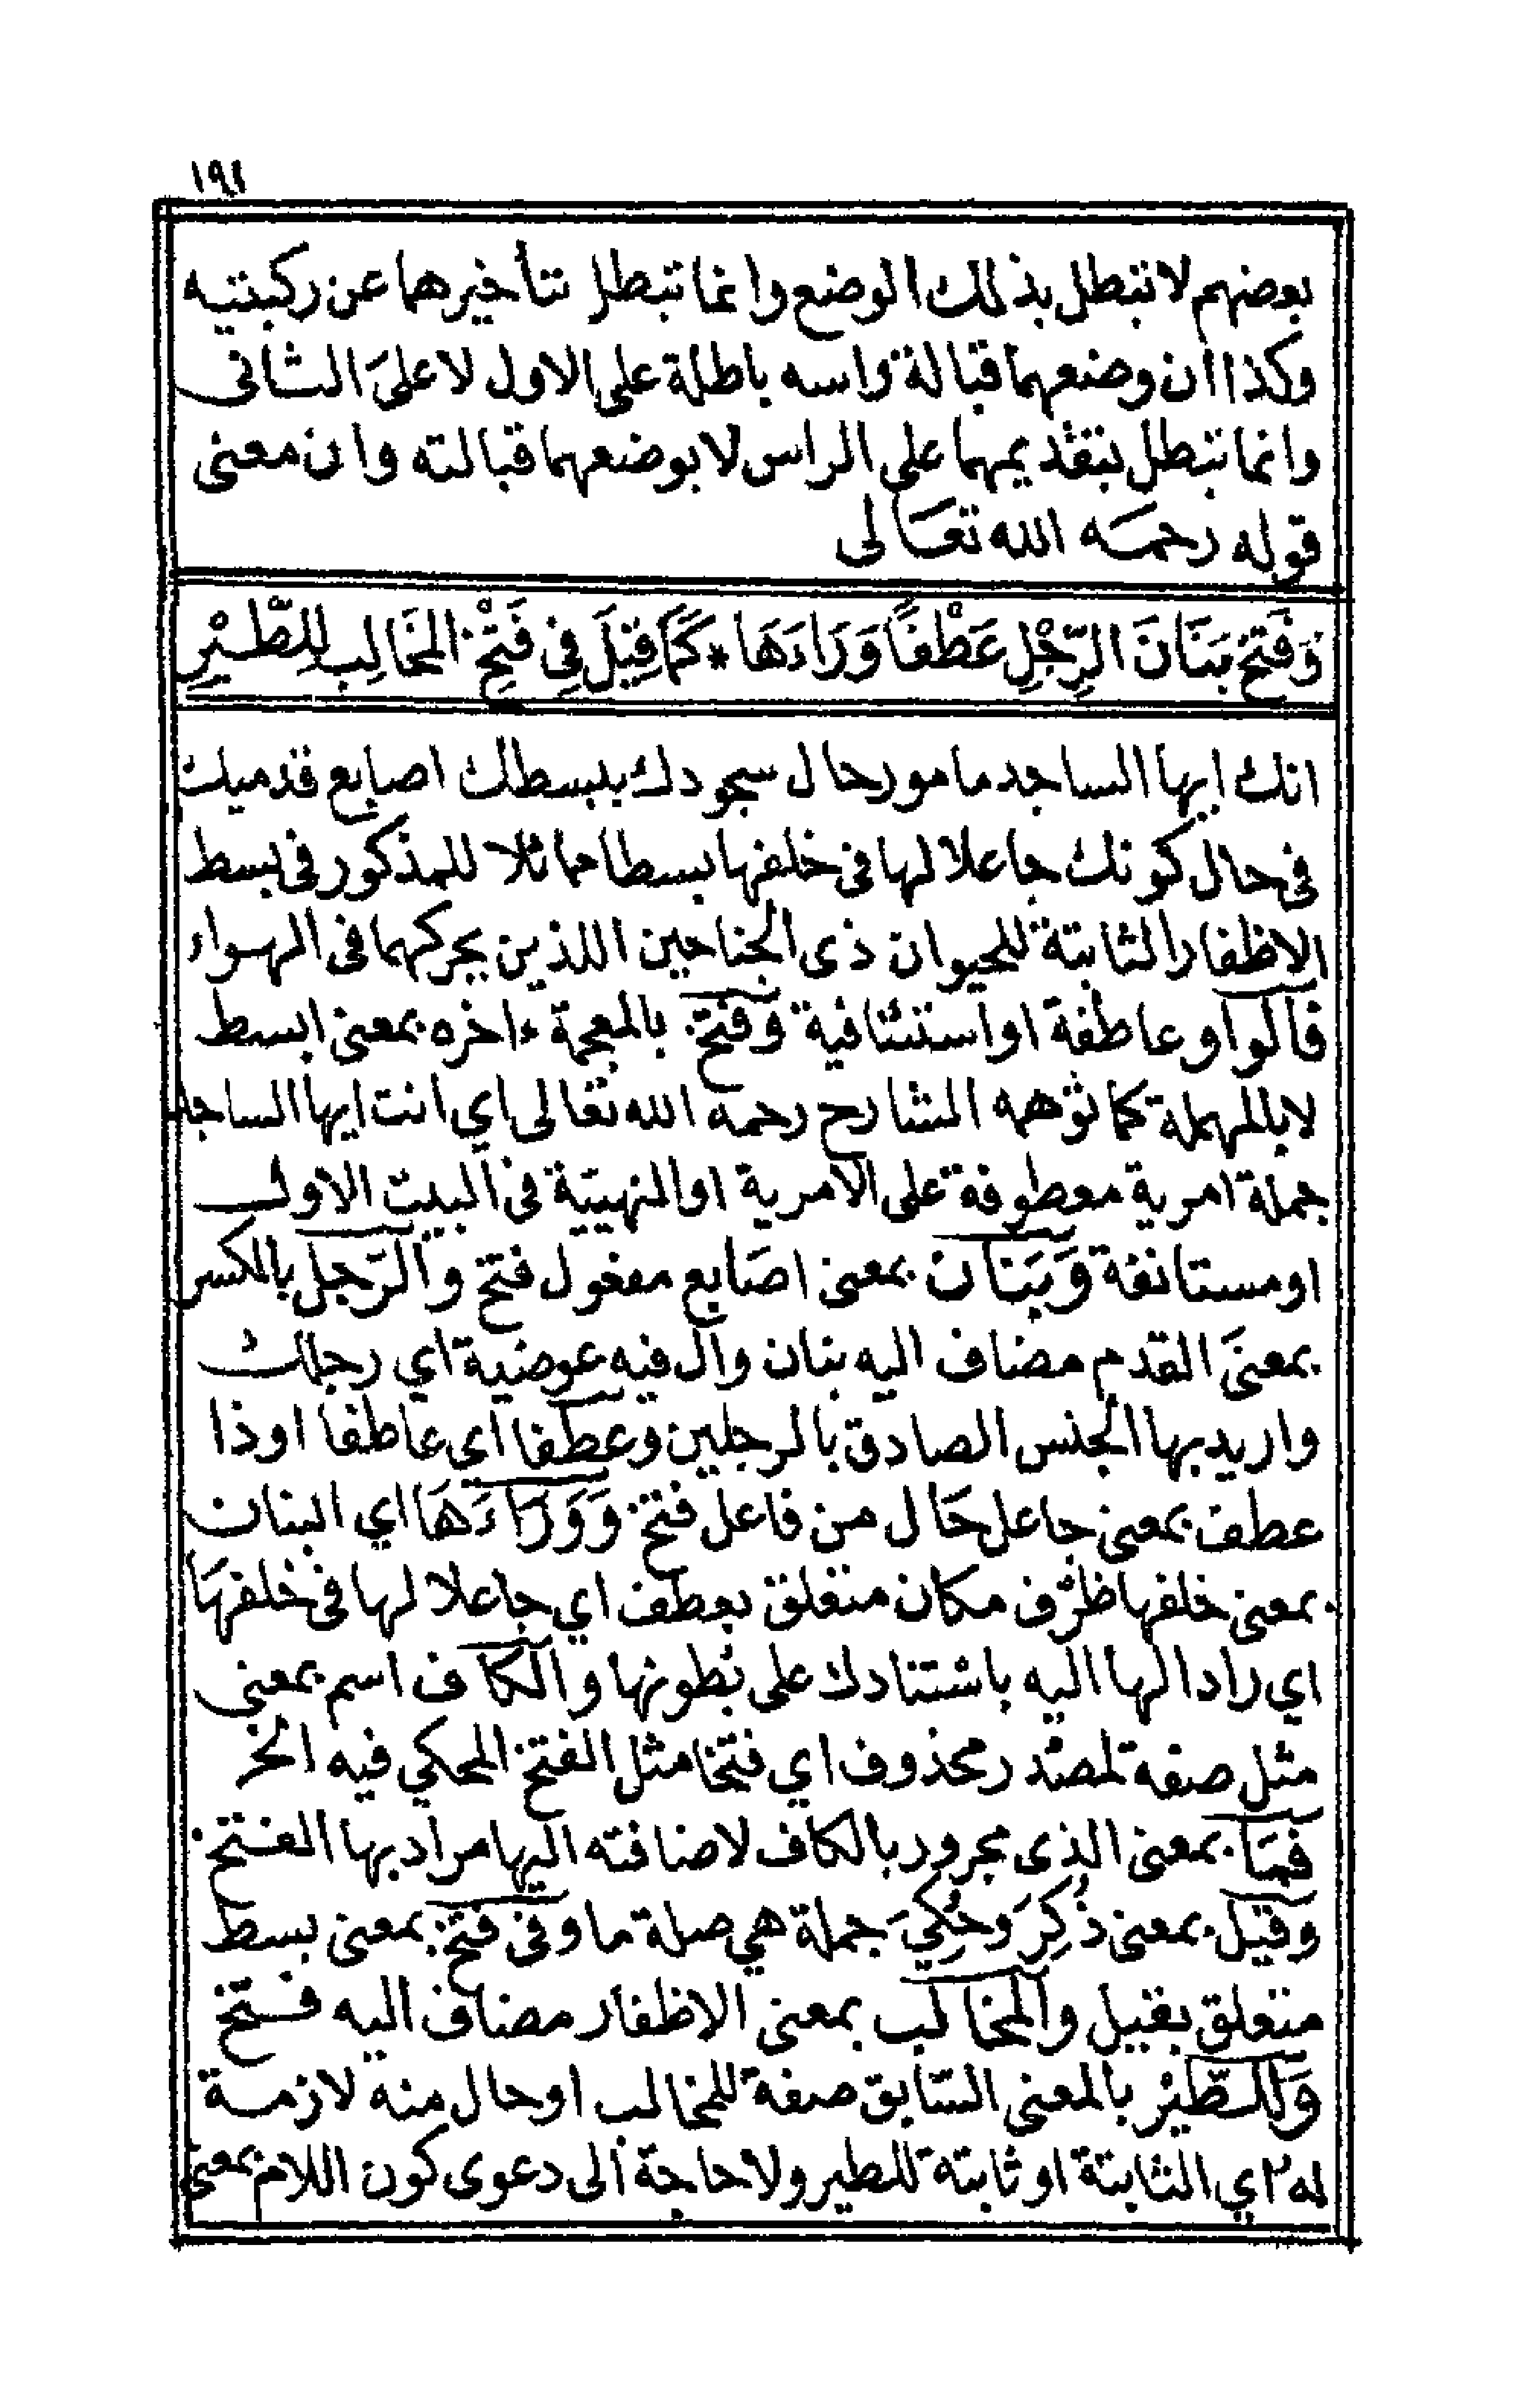 ١٩٤
بعضهم لا تبطل بذلك الوضع وانما تبطل بتأخيرهما عن ركبتيه
وكذا ان وضعهما قبالة راسه باطلة على الاول لا على الثانى
وانما تبطل بتقديمهما على الراس لا بوضعهما قبالته وان معنى
قوله رحمه الله تعالى
وَفَتْخِ بَنَانَ الرِّجْلِ عَطْفًا وَرَاءَهَا * كَمَا قِيلَ فِى فَتْخِ المَخَالِبِ لِلطَّيْرِ
انك ايها الساجد مامور حال سجودك ببسطك اصابع قدميك
فى حال كونك جاعلا لها فى خلفها بسطا مماثلا للمذكور فى بسط
الاظفار الثابتة للحيوان ذى الجناحين اللذين يحركهما فى الهواء
فالواو عاطفة او استئنافية وفتخ بالمعجمة ءاخره بمعنى ابسط
لا بالمهملة كما توهمه الشارح رحمه الله تعالى اي انت ايها الساجد
جملة امرية معطوفة على الامرية او النهيية فى البيت الاول
او مستانفة وَبَنَان بمعنى اصَابع مفعول فتخ والرّجل بالكسر
بمعنىَ القدم مضاف اليه بنان وال فيه عوضية اي رجلك
واريد بها الجنس الصادق بالرجلين وعطفا اي عاطفا او ذا
عطف بمعنى جاعل حَال من فاعل فتخ وَوَرَاءَهَا اي البنان
بمعنى خلفها ظرف مكان متعلق بعطف اي جاعلا لها فى خلفهَا
اي رادا لها اليه باستنادك على بطونها والكاف اسم بمعنى
مثل صفة لمصدر محذوف اي فتخا مثل الفتخ المحكي فيه الخ
فمَا بمعنى الذى مجرور بالكاف لاضافته اليها مراد بها الفتخ
وقيل بمعنى ذُكِرَ وحُكِيَ جملة هي صلة ما وفى فتخ بمعنى بسط
متعلق بقيل والمخالب بمعنى الاظفار مضاف اليه فتخ
وَللطّيْر بالمعنى السّابق صفة للمخالب او حال منه لازمة
له اي الثابتة او ثابتة للطير ولا حاجة الى دعوى كون اللام بمعنى